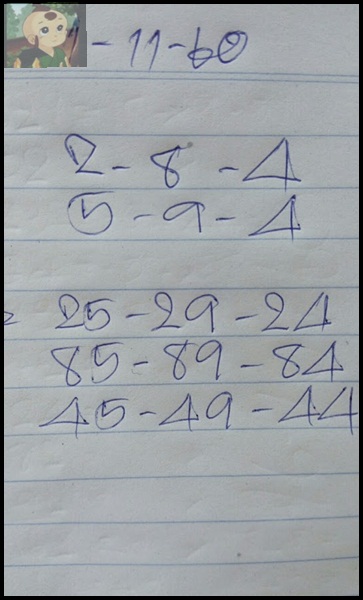 - 11-60
2 - 8 - 4
5 - 9 - 4
25 - 29 - 24
85 - 89 - 84
45 - 49 - 44